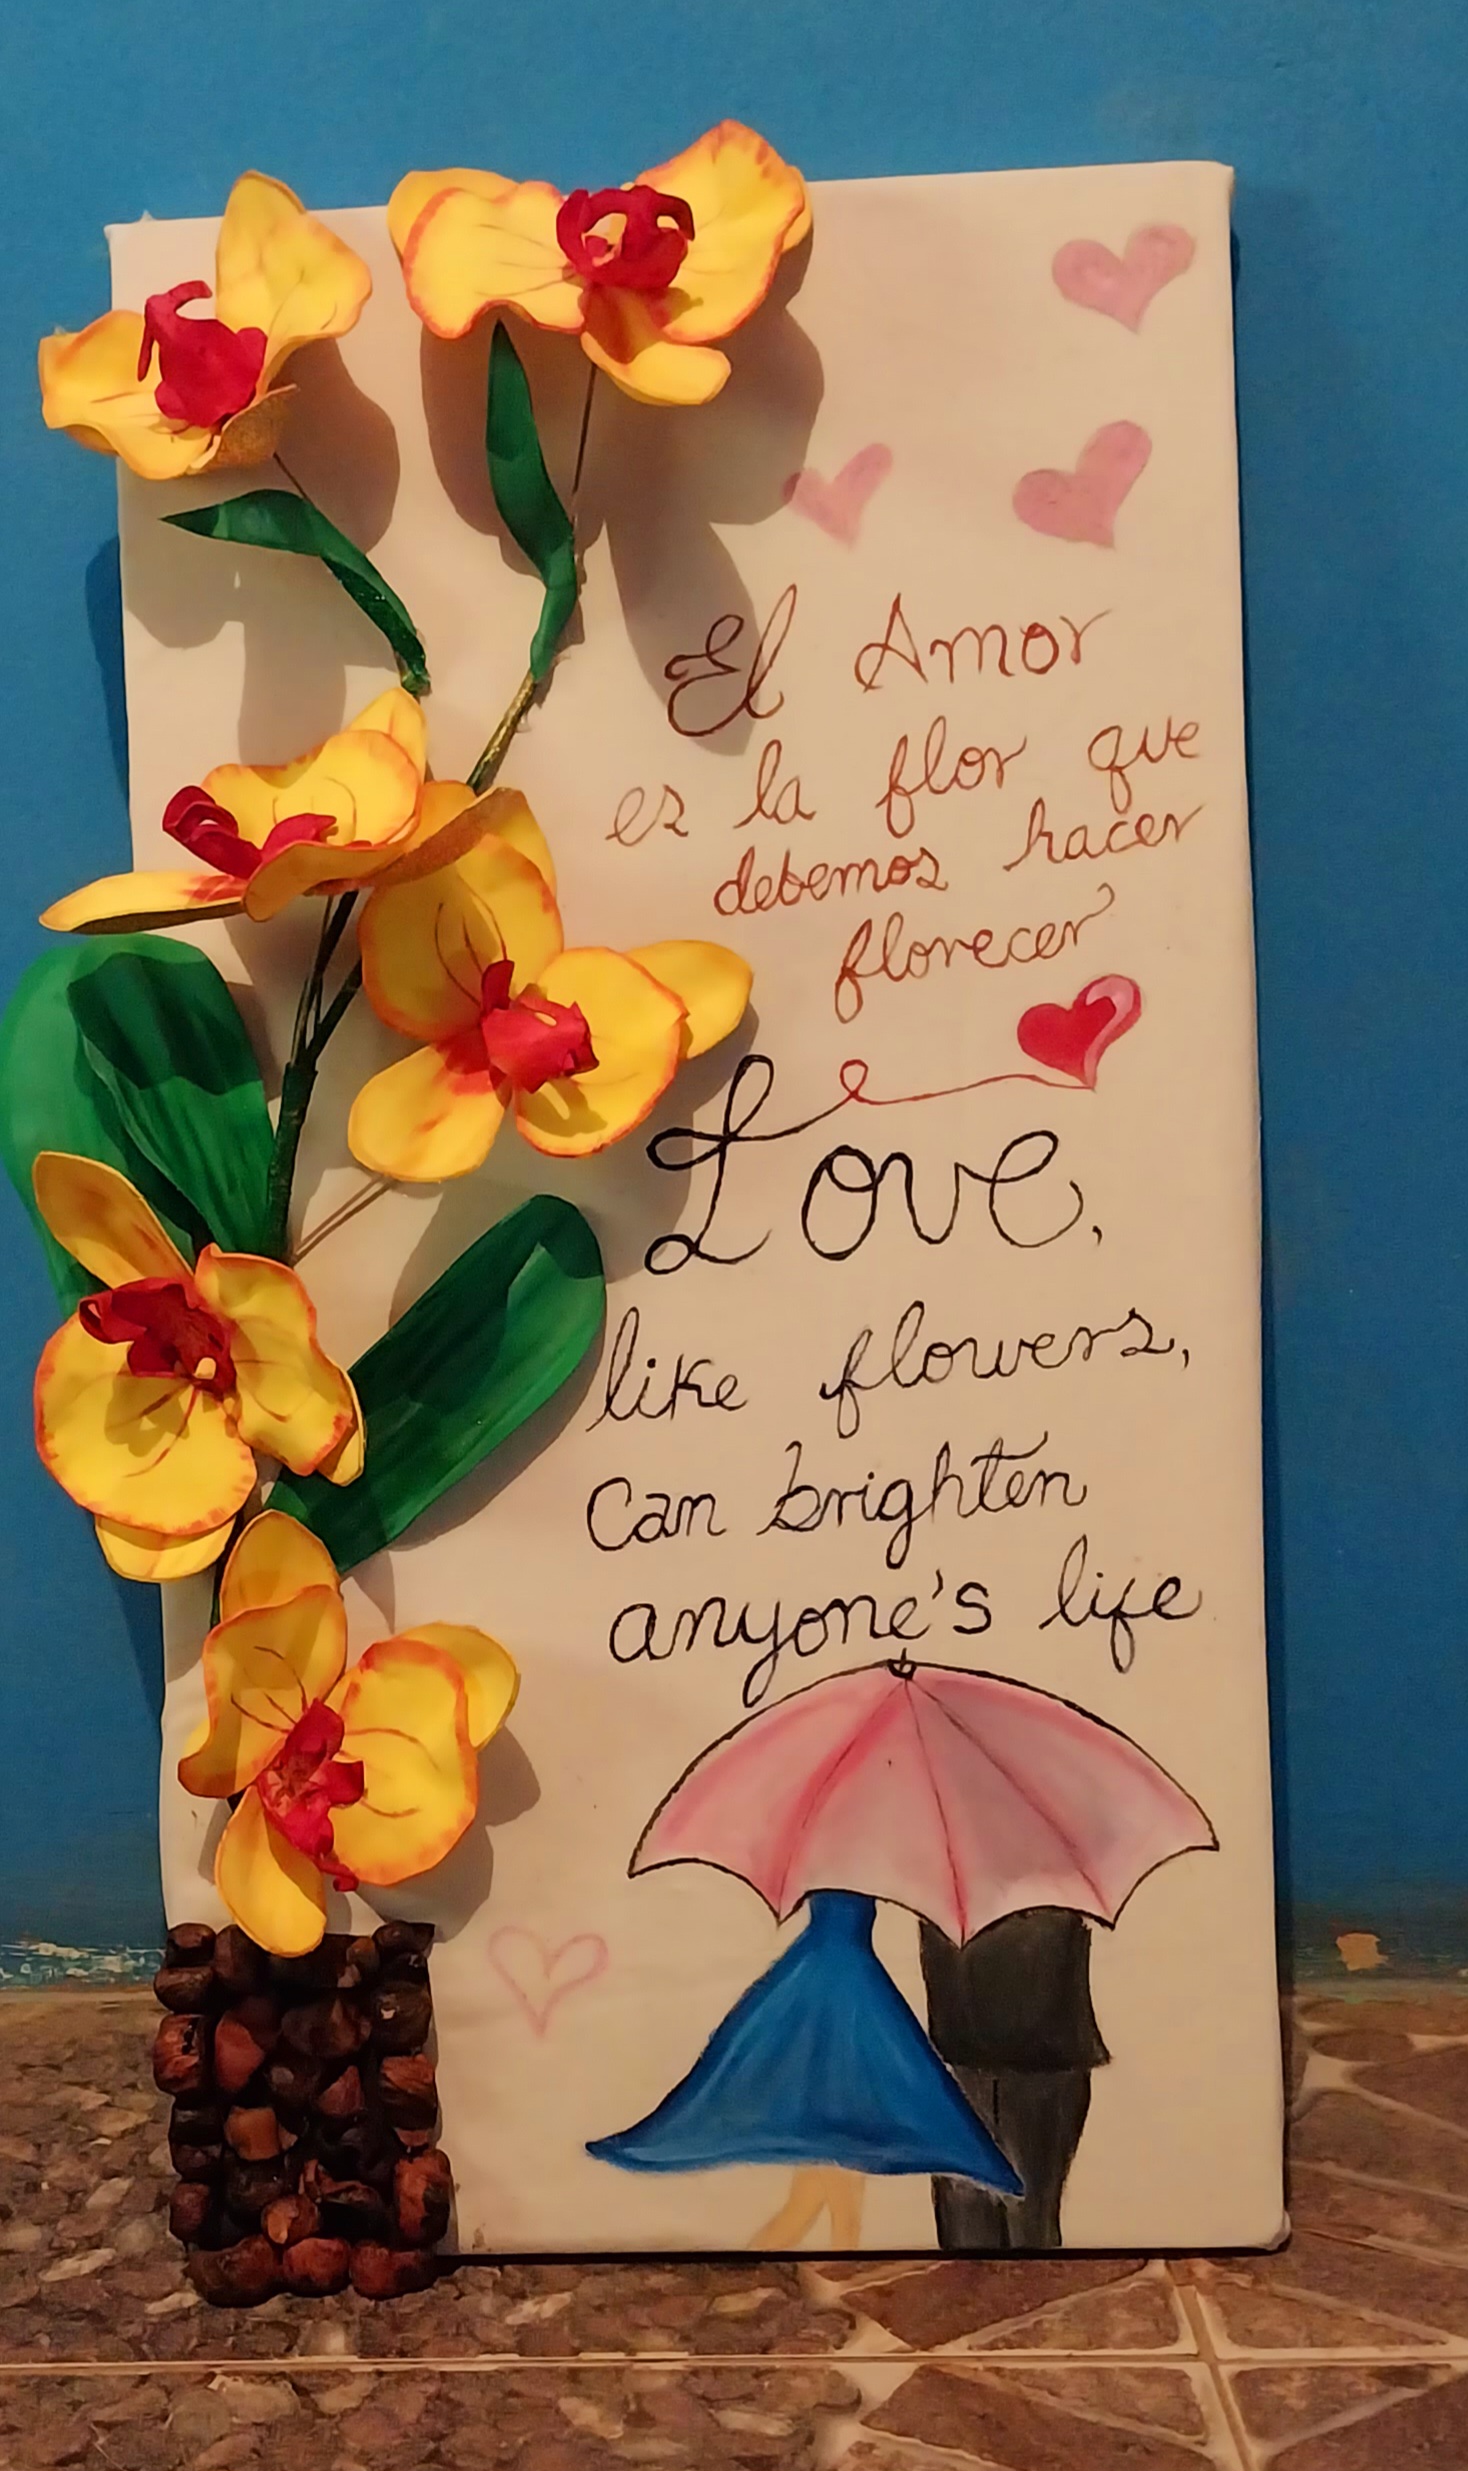 El Amor
es la flor que
debemos hacer
florecer
Love,
like flowers,
Can brighten
anyone's life